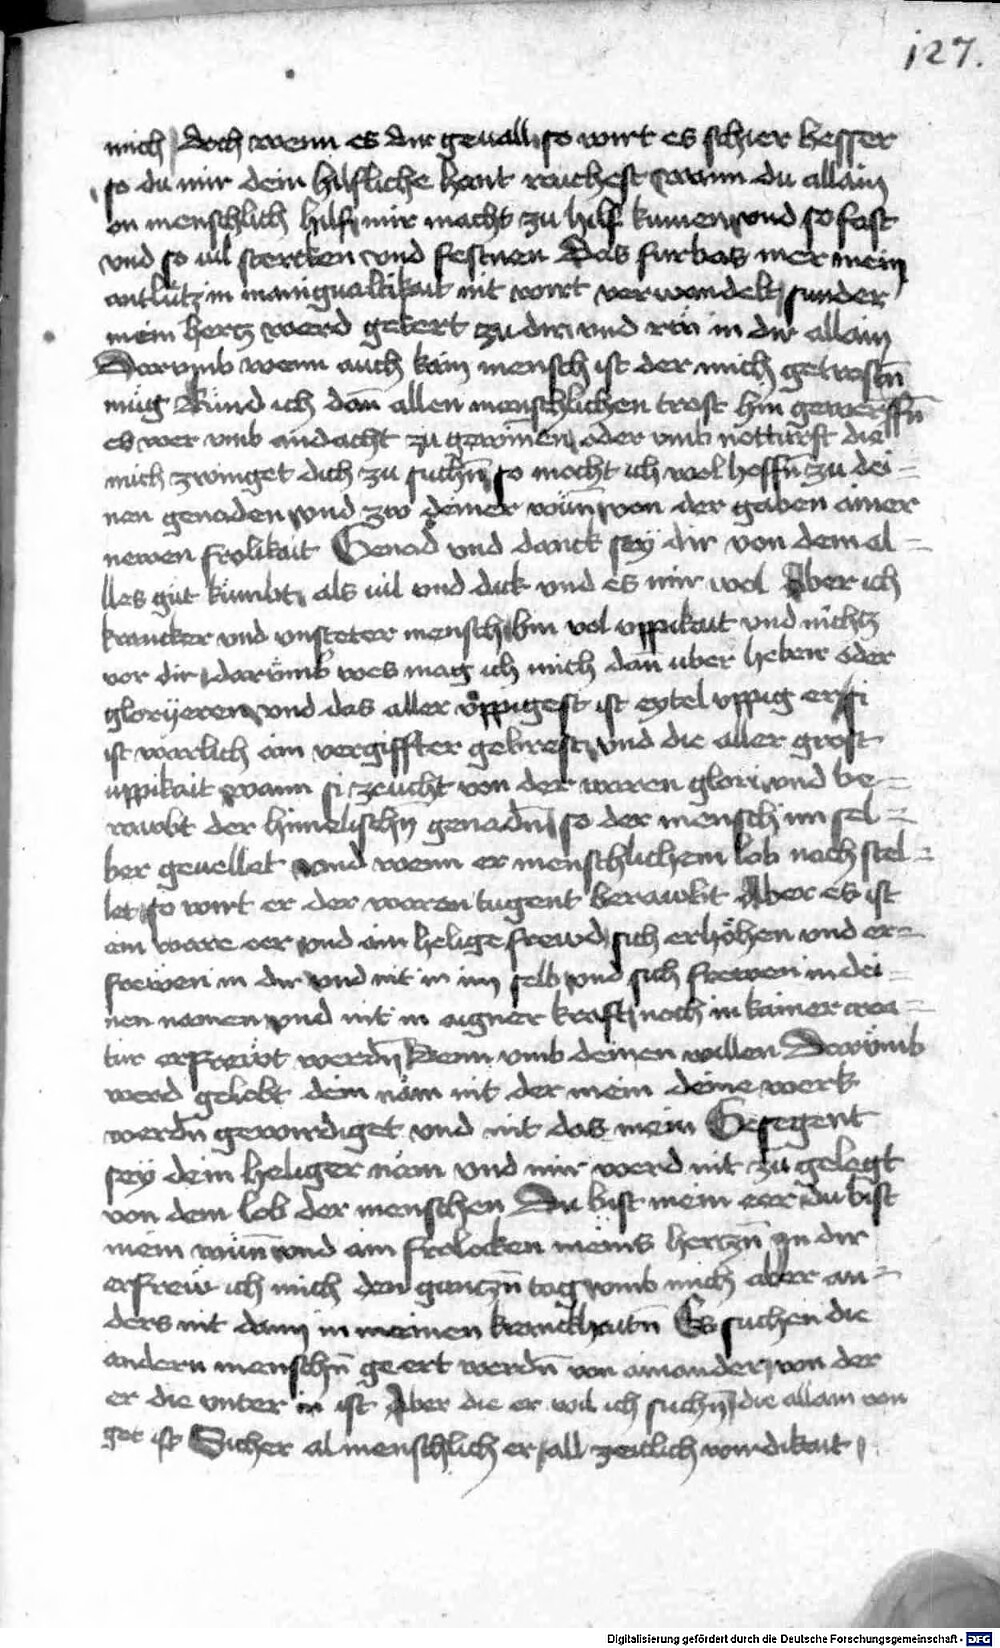 127.
mich / doch wenn es dir geuall / so wirt es schier besser
so du mir dein hilfliche hant raichest / wann du allain
on menschlich hilf / mir macht zu hilf kumen / vnd so fast
vnd so uil stercken vnd festnen Das furbas mer mein
antlutz in mangualtikait nit wirt verwandelt / sunder
mein hertz werd gekert zu dir / vnd rw in dir allain
Dorvmb wann auch kain mensch ist der mich getrostn̄
müg Künd ich dan̄ allen menschlichen trost hin gewerffn̄
es wer vmb andacht zu gewin̄en / oder vmb notturft die
mich zwinget dich zu suchn̄ / so mocht ich wol hoffn̄ zu dei=
nen genaden / vnd zw deiner wun̄ / von der gaben ainer
newen frolikait Genad vnd danck sey dir von dem al=
lles gut kumbt / als uil vnd dick vnd es mir wol Aber ich
krancker vnd vnsteter mensch / bin vol vppikait vnd nichtz
vor dir / darümb wes mag ich mich dan̄ uber heben oder
glorÿeren / vnd das aller üppigest ist eytel vppig er / si
ist warlich ain vergiffter gebrest / vnd die aller grost
uppikait / wann si zeucht von der waren glori / vnd be=
rawbt der himelischn̄ genadn̄ / so der mensch im sel=
ber geuellet vnd wenn er menschlichem lob nach stel=
let / so wirt er der waren tugent berawbt Aber es ist
ein ware eer / vnd ain helige frewd / sich erhöhen vnd er=
frewen in dir / vnd nit in im selb / vnd sich frewen in dei=
nen namen / vnd nit in aigner kraft / noch in kainer crea=
tur erfrewt werdn̄ / denn vmb deinen willen Darümb
werd gelobt dein nam nit der mein deine werk
werdn̄ gewirdiget vnd nit das mein Gesegent
sey dein heliger nam vnd mir werd nit zu gelegt
von dem lob der menschen Du bist mein eer / du bist
mein wun̄ / vnd ain frolocken meins hertzn̄ / in dir
erfrew ich mich den gantzn̄ tag / vmb mich aber an=
ders nit dann in meinen kranckhaitn̄ Es suchen die
andern menschn̄ ge ert werdn̄ von ainander / von der
er die vnter in ist Aber die er wil ich suchn̄ / die allain von
got ist Sicher al menschlich er / all zeitlich wirdikait /
Digitalisierung gefördert durch die Deutsche Forschungsgemeinschaft - DFG